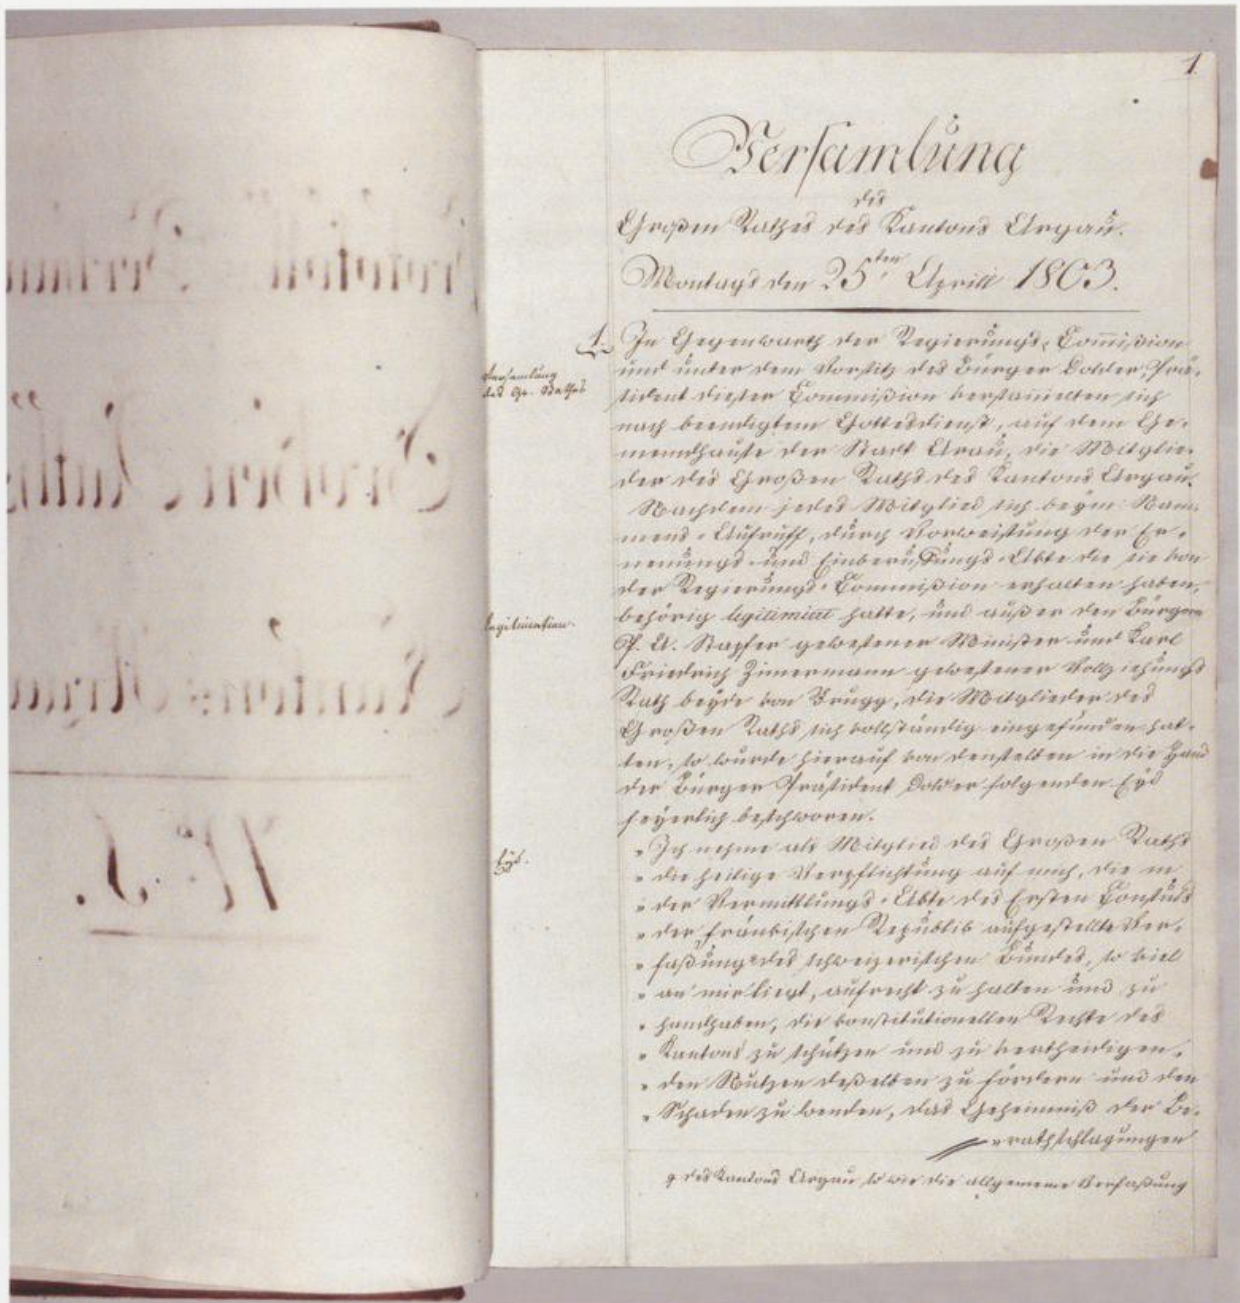 1.
Versamlung
des
Großen Rathes des Kantons Argau.
Montags den 25ten Aprill 1803.
1.
Versamlung
des Gr. Rathes
In Gegenwarth der Regierungs-Commißion
und unter dem Vorsitz des Bürger Dolder, Prä-
sident dieser Commißion versammelten sich
nach beendigtem Gottesdienst, auf dem Ge-
meindhause der Stadt Arau, die Mitglie-
der des Großen Raths des Kantons Argau.
Nachdem jedes Mitglied sich beym Nam-
mens-Aufruff, durch Vorweisung der Er-
nennungs- und Einberuffungs-Akte die sie von
der Regierungs-Commißion erhalten haben,
Legitimation.
behörig legitimirt hatte, und außer den Bürgern
P. A. Stapfer gewesener Minister und Karl
Friedrich Zimermann gewesener Vollziehungs
Rath beyde von Brugg, die Mitglieder des
Großen Raths sich vollständig eingefunden hat-
ten, so wurde hierauf von denselben in die Hand
des Bürger Präsident Dolder folgenden Eyd
feyerlich beschworen.
Eyd.
„Ich nehme als Mitglied des Großen Raths
„die heilige Verpflichtung auf mich, die in
„der Vermittlungs-Akte des Ersten Consuls
„der fränkischen Republik aufgestellte Ver-
„faßung des schweizerischen Bundes, so viel
„an mir liegt, aufrecht zu halten und zu
„handhaben, die konstitutionellen Rechte des
„Kantons zu schützen und zu vertheidigen,
„den Nutzen deßelben zu fördern und den
„Schaden zu wenden, das Geheimniß der Be-
„rathschlagungen
des Kantons Argau so wie die allgemeine Verfaßung
Protokoll
Großen Raths
Kantons Argau
N° I.